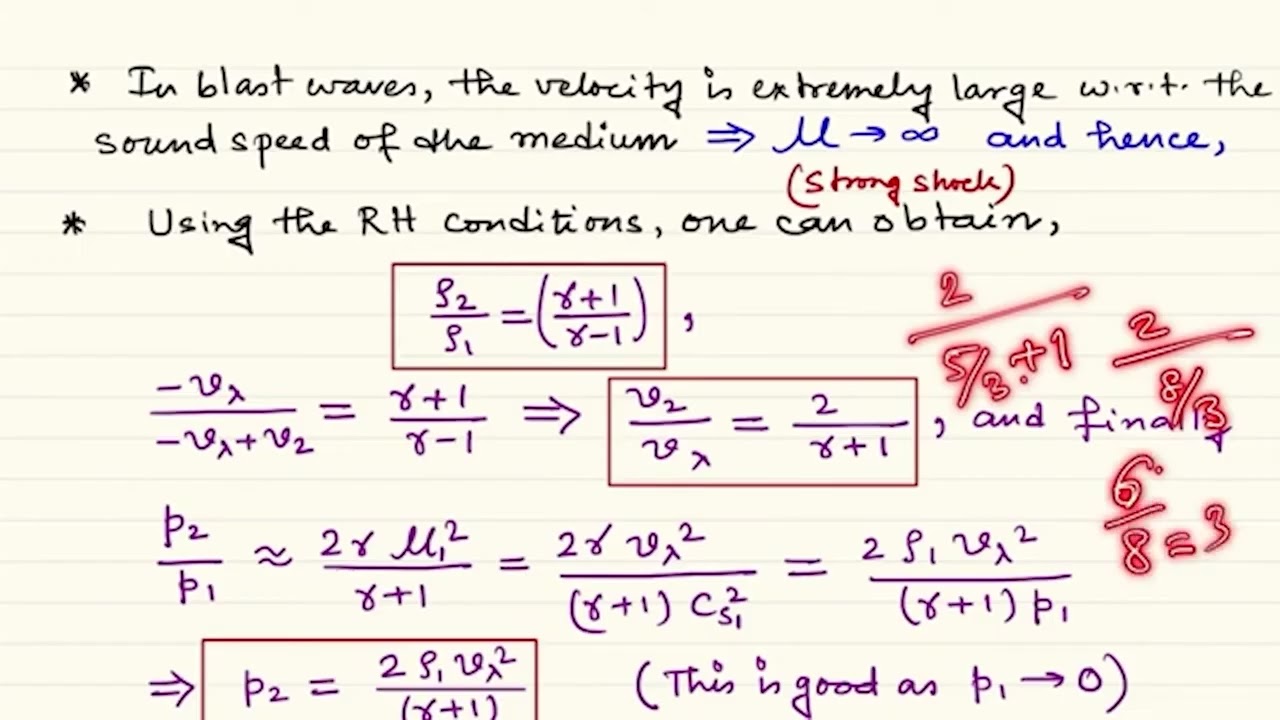 * In blast waves, the velocity is extremely large w.r.t. the
sound speed of the medium ⇒ M → ∞ and hence,
(strong shock)
* Using the RH conditions, one can obtain,
ρ₂/ρ₁ = (γ+1/γ-1) ,
2/(5/3+1) 2/(8/3)
-v_λ/(-v_λ+v₂) = (γ+1)/(γ-1) ⇒ v₂/v_λ = 2/(γ+1) , and finally
6/8 = 3
p₂/p₁ ≈ 2γM₁²/(γ+1) = 2γv_λ²/((γ+1) C_s₁²) = 2ρ₁v_λ²/((γ+1) p₁)
⇒ p₂ = 2ρ₁v_λ²/(γ+1) (This is good as p₁ → 0)